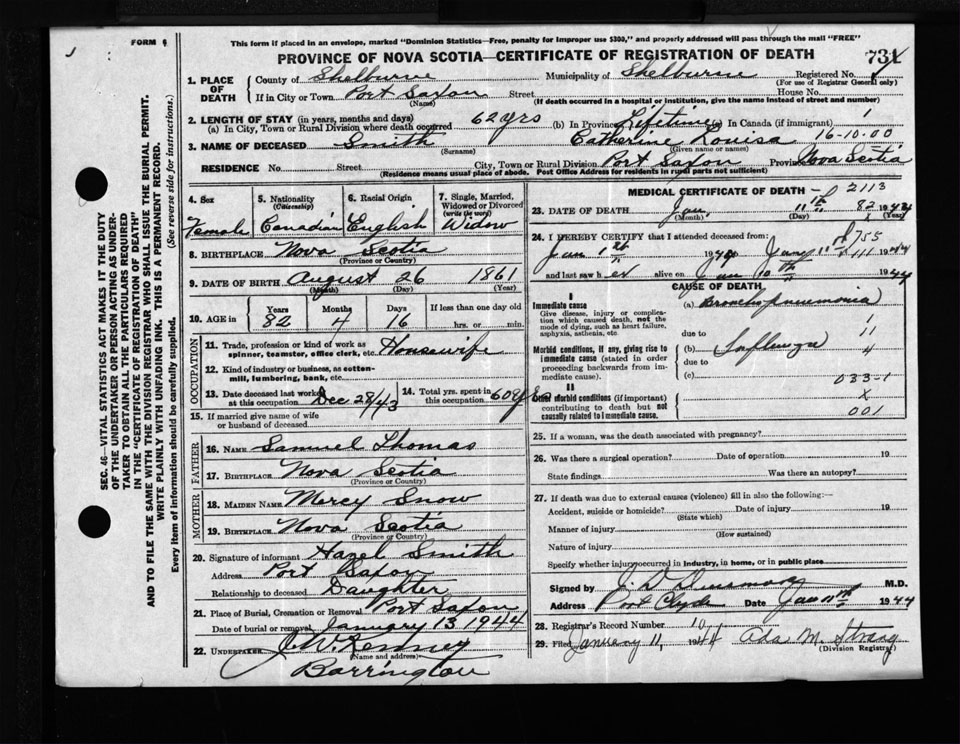 FORM 4
This form if placed in an envelope, marked "Dominion Statistics—Free, penalty for improper use $300," and properly addressed will pass through the mail "FREE"
PROVINCE OF NOVA SCOTIA—CERTIFICATE OF REGISTRATION OF DEATH
1. PLACE OF DEATH County of Shelburne Municipality of Shelburne Registered No.
(For use of Registrar General only)
If in City or Town Port Saxon Street House No.
(Name) (If death occurred in a hospital or institution, give the name instead of street and number)
2. LENGTH OF STAY (in years, months and days)
(a) In City, Town or Rural Division where death occurred 62 yrs (b) In Province Lifetime (c) In Canada (if immigrant)
3. NAME OF DECEASED Smith Catherine Louisa 16-10-00
(Surname) (Given name or names)
RESIDENCE No. Street City, Town or Rural Division Port Saxon Province Nova Scotia
(Residence means usual place of abode. Post Office Address for residents in rural parts not sufficient)
SEC. 46—VITAL STATISTICS ACT MAKES IT THE DUTY
OF THE UNDERTAKER OR PERSON ACTING AS UNDER-
TAKER TO OBTAIN ALL THE PARTICULARS REQUIRED
IN THE "CERTIFICATE OF REGISTRATION OF DEATH"
AND TO FILE THE SAME WITH THE DIVISION REGISTRAR WHO SHALL ISSUE THE BURIAL PERMIT.
WRITE PLAINLY WITH UNFADING INK. THIS IS A PERMANENT RECORD.
Every item of information should be carefully supplied. (See reverse side for instructions.)
4. Sex 5. Nationality (Citizenship) 6. Racial Origin 7. Single, Married, Widowed or Divorced (write the word)
Female Canadian English Widow
8. BIRTHPLACE Nova Scotia
(Province or Country)
9. DATE OF BIRTH August 26 1861
(Month) (Day) (Year)
10. AGE in Years Months Days If less than one day old
82 4 16 hrs. or min.
OCCUPATION
11. Trade, profession or kind of work as spinner, teamster, office clerk, etc. Housewife
12. Kind of industry or business, as cotton-mill, lumbering, bank, etc.
13. Date deceased last worked at this occupation Dec 28/43 14. Total yrs. spent in this occupation 60 yrs
15. If married give name of wife or husband of deceased
FATHER
16. Name Samuel Thomas
17. Birthplace Nova Scotia
(Province or Country)
MOTHER
18. Maiden Name Mercy Snow
19. Birthplace Nova Scotia
(Province or Country)
20. Signature of informant Hazel Smith
Address Port Saxon
Relationship to deceased Daughter
21. Place of Burial, Cremation or Removal Port Saxon
Date of burial or removal January 13 1944
22. UNDERTAKER Kenney
(Name and address)
Barrington
MEDICAL CERTIFICATE OF DEATH 2113
23. DATE OF DEATH Jan. 11th 82 1944
(Month) (Day) (Year)
24. I HEREBY CERTIFY that I attended deceased from: 755
Jan 1st 1944 to Jany 11th 1944
and last saw her alive on Jan 10th 1944
CAUSE OF DEATH
I
Immediate cause
Give disease, injury or complication which caused death, not the mode of dying, such as heart failure, asphyxia, asthenia, etc
(a) Bronchopneumonia
due to
Morbid conditions, if any, giving rise to immediate cause (stated in order proceeding backwards from immediate cause).
(b) Influenza
due to
(c) 033-1
II
Other morbid conditions (if important) contributing to death but not causally related to immediate cause.
001
25. If a woman, was the death associated with pregnancy?
26. Was there a surgical operation? Date of operation 19
State findings Was there an autopsy?
27. If death was due to external causes (violence) fill in also the following:—
Accident, suicide or homicide? Date of injury 19
(State which)
Manner of injury
(How sustained)
Nature of injury
Specify whether injury occurred in industry, in home, or in public place
Signed by M.D.
Address Port Clyde Date Jan 11th 1944
28. Registrar's Record Number 10
29. Filed January 11, 1944 Ada M.
(Division Registrar)